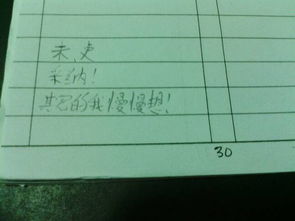 未,吏
采纳!
其它的我慢慢想!
30